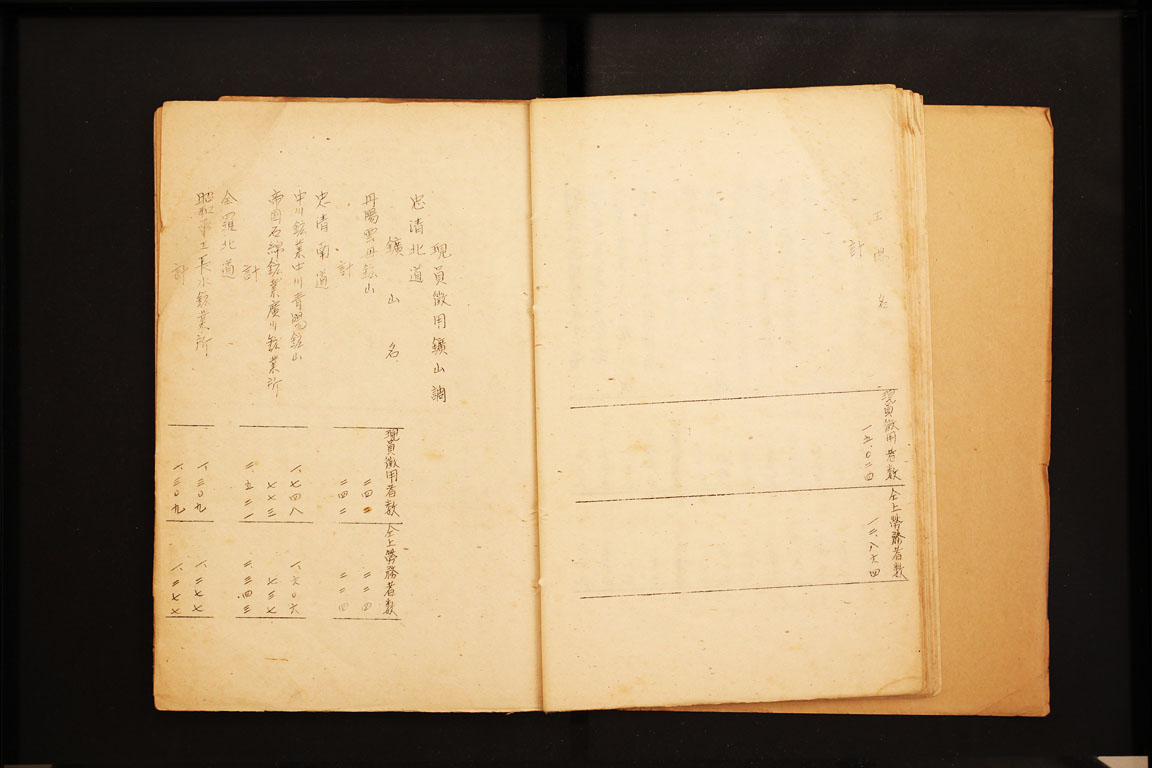 工場名 現員徴用者数 仝上労務者数
計 一五.〇二四 一三.八六四
現員徴用鑛山調
忠清北道
鑛山名 現員徴用者数 仝上労務者数
丹陽雲母鉱山 二四二 二二四
計 二四二 二二四
忠清南道
中川鉱業中川青陽鉱山 一.七四八 一.六〇六
帝国石綿鉱業廣川鉱業所 七七三 七三七
計 二.五二一 二.三四三
全羅北道
昭和電工長水鉱業所 一.三〇九 一.二七七
計 一.三〇九 一.二七七